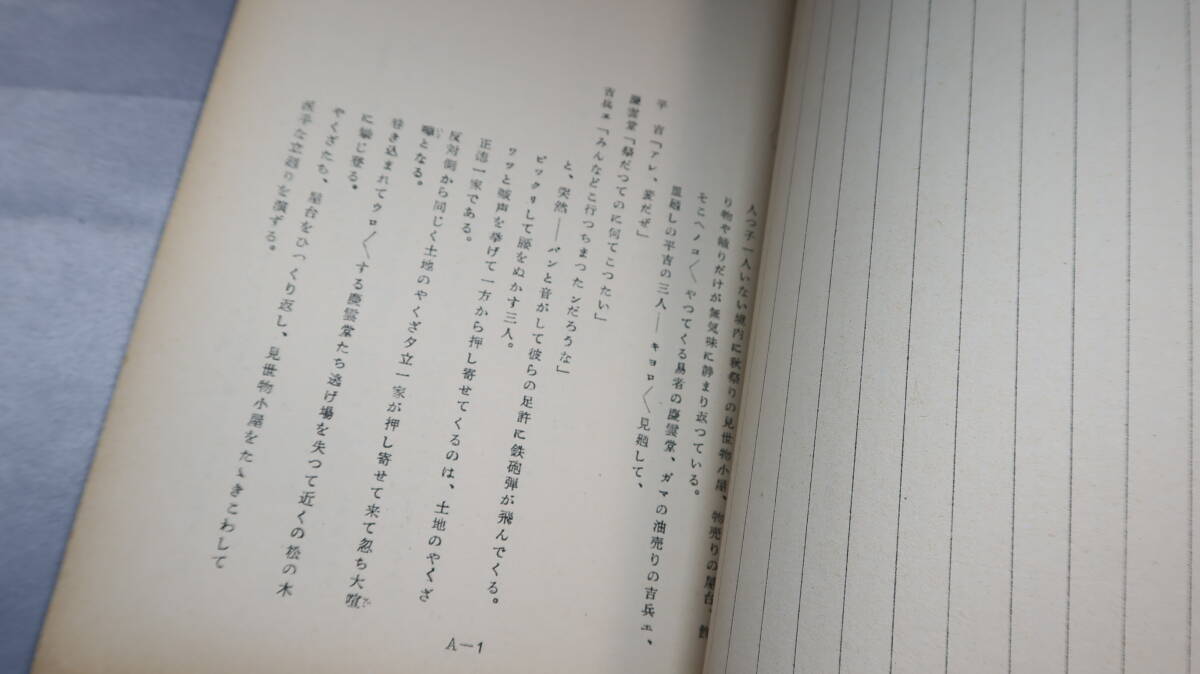 人つ子一人いない境内に秋祭りの見世物小屋、物売りの屋台、飾
り物や幟りだけが無気味に静まり返つている。
そこへノコ〱やつてくる易者の慶雲堂、ガマの油売りの吉兵エ、
越しの平吉の三人――キヨロ〱見廻して、
平吉「アレ、変だぜ」
慶雲堂「祭だつてのに何てこつたい」
吉兵エ「みんなどこ行つちまつたンだろうな」
と、突然――パンと音がして彼らの足許に鉄砲弾が飛んでくる。
ビックリして腰をぬかす三人。
ワッと喊声を挙げて一方から押し寄せてくるのは、土地のやくざ
正徳一家である。
反対側から同じく土地のやくざ夕立一家が押し寄せて来て忽ち大喧
嘩となる。
巻き込まれてウロ〱する慶雲堂たち逃げ場を失つて近くの松の木
に攀じ登る。
やくざたち、屋台をひっくり返し、見世物小屋をたゝきこわして
派手な立廻りを演ずる。
A—1